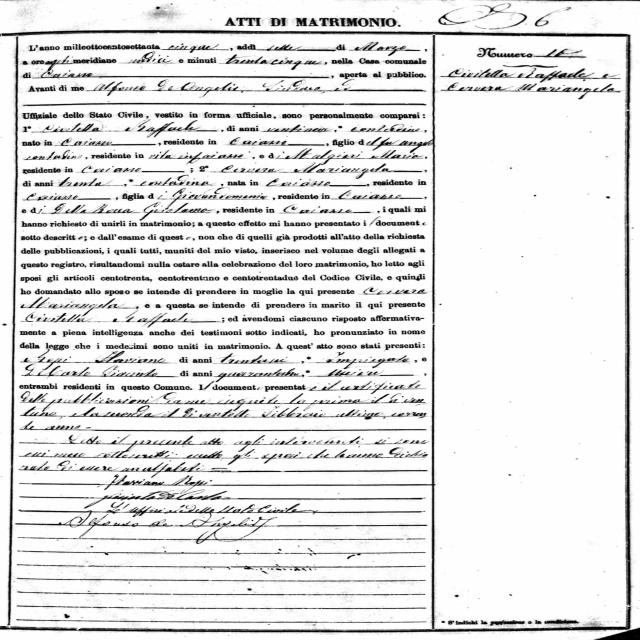 ATTI DI MATRIMONIO.
6
L'anno milleottocentosettanta cinque, addì sette di Marzo,
a ore meridiane undici e minuti trenta cinque, nella Casa comunale
di Caiazzo, aperta al pubblico.
Avanti di me Alfonso De Angelis, Sindaco
Uffiziale dello Stato Civile, vestito in forma uffiziale, sono personalmente comparsi:
1° Civitella Raffaele, di anni, contadino,
nato in Caiazzo, residente in Caiazzo, figlio del fu Angelo
contadino, residente in vita in Caiazzo, e di Malgieri Maria
residente in Caiazzo; 2° Cervera Mariangela,
di anni trenta, contadina, nata in Caiazzo, residente in
Caiazzo, figlia di Giovandomenico, residente in Caiazzo,
e di Della Rocca, residente in Caiazzo, i quali mi
hanno richiesto di unirli in matrimonio; a questo effetto mi hanno presentato i documenti
sotto descritti; e dall'esame di questi, non che di quelli già prodotti all'atto della richiesta
delle pubblicazioni, i quali tutti, muniti del mio visto, inserisco nel volume degli allegati a
questo registro, risultandomi nulla ostare alla celebrazione del loro matrimonio, ho letto agli
sposi gli articoli centotrenta, centotrentuno e centotrentadue del Codice Civile, e quindi
ho domandato allo sposo se intende di prendere in moglie la qui presente Cervera
Mariangela, e a questa se intende di prendere in marito il qui presente
Civitella Raffaele; ed avendomi ciascuno risposto affermativa-
mente a piena intelligenza anche dei testimoni sotto indicati, ho pronunziato in nome
della legge che i medesimi sono uniti in matrimonio. A quest'atto sono stati presenti:
Rossi Flaviano di anni, Impiegato, e
Di Carlo Giacinto di anni quarantotto,
entrambi residenti in questo Comune. I documenti presentati è il certificato
delle pubblicazioni da me eseguite la prima il dì ven-
tuno, e la seconda il dì ventotto Febbraio ultimo, corren-
te anno
Letto il presente atto agli intervenuti si sono
con meco sottoscritti eccetto gli sposi che hanno dichia-
rato di essere analfabeti
Flaviano Rossi
Giacinto Di Carlo
L'Uffiziale dello Stato Civile
Alfonso de Angelis
Numero 16
Civitella Raffaele e
Cervera Mariangela
* S'indichi la professione o la condizione.